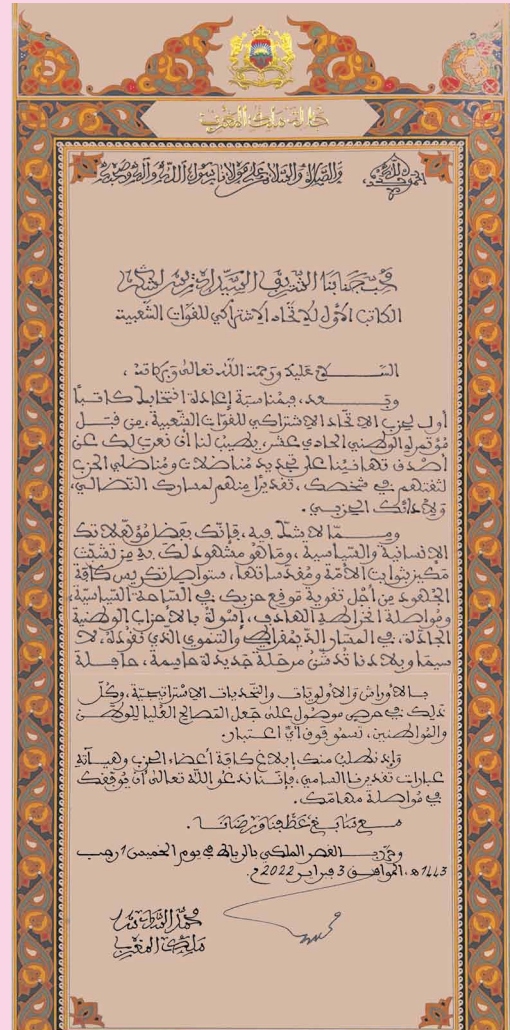 جلالة ملك المغرب
الحمد لله وحده
والصلاة والسلام على مولانا رسول الله وآله وصحبه
محب جنابنا الشريف السيد ادريس لشكر
الكاتب الأول للاتحاد الاشتراكي للقوات الشعبية
السلام عليك ورحمة الله تعالى وبركاته،
وبعد، فبمناسبة إعادة انتخابك كاتبا
أول لحزب الاتحاد الاشتراكي للقوات الشعبية، من قبل
مؤتمره الوطني الحادي عشر، يطيب لنا أن نعرب لك عن
أصدق تهانينا على تجديد مناضلات ومناضلي الحزب
ثقتهم في شخصك، تقديرا منهم لمسارك النضالي،
ولأدائك الحزبي.
ومما لا شك فيه، فإنك بفضل مؤهلاتك
الإنسانية والسياسية، وما هو مشهود لك به من تشبث
مكين بثوابت الأمة ومقدساتها، ستواصل تكريس كافة
الجهود من أجل تقوية موقع حزبك في الساحة السياسية،
ومواصلة انخراطه الهادف، إسوة بالأحزاب الوطنية
الجادة، في المسار الديمقراطي والتنموي الذي نقوده، لا
سيما وبلادنا تدشن مرحلة جديدة حاسمة، حافلة
بالأوراش والأولويات والتحديات الاستراتيجية، وكل
ذلك في حرص موصول على جعل المصالح العليا للوطن
والمواطنين، تسمو فوق أي اعتبار.
وإذ نطلب منك إبلاغ كافة أعضاء الحزب وهيآته
عبارات تقديرنا السامي، فإننا ندعو الله تعالى أن يوفقك
في مواصلة مهامك.
مع سابغ عطفنا ورضانا.
وحرر بالقصر الملكي بالرباط في يوم الخميس 1 رجب
1443 هـ، الموافق 3 فبراير 2022 م.
محمد السادس
ملك المغرب